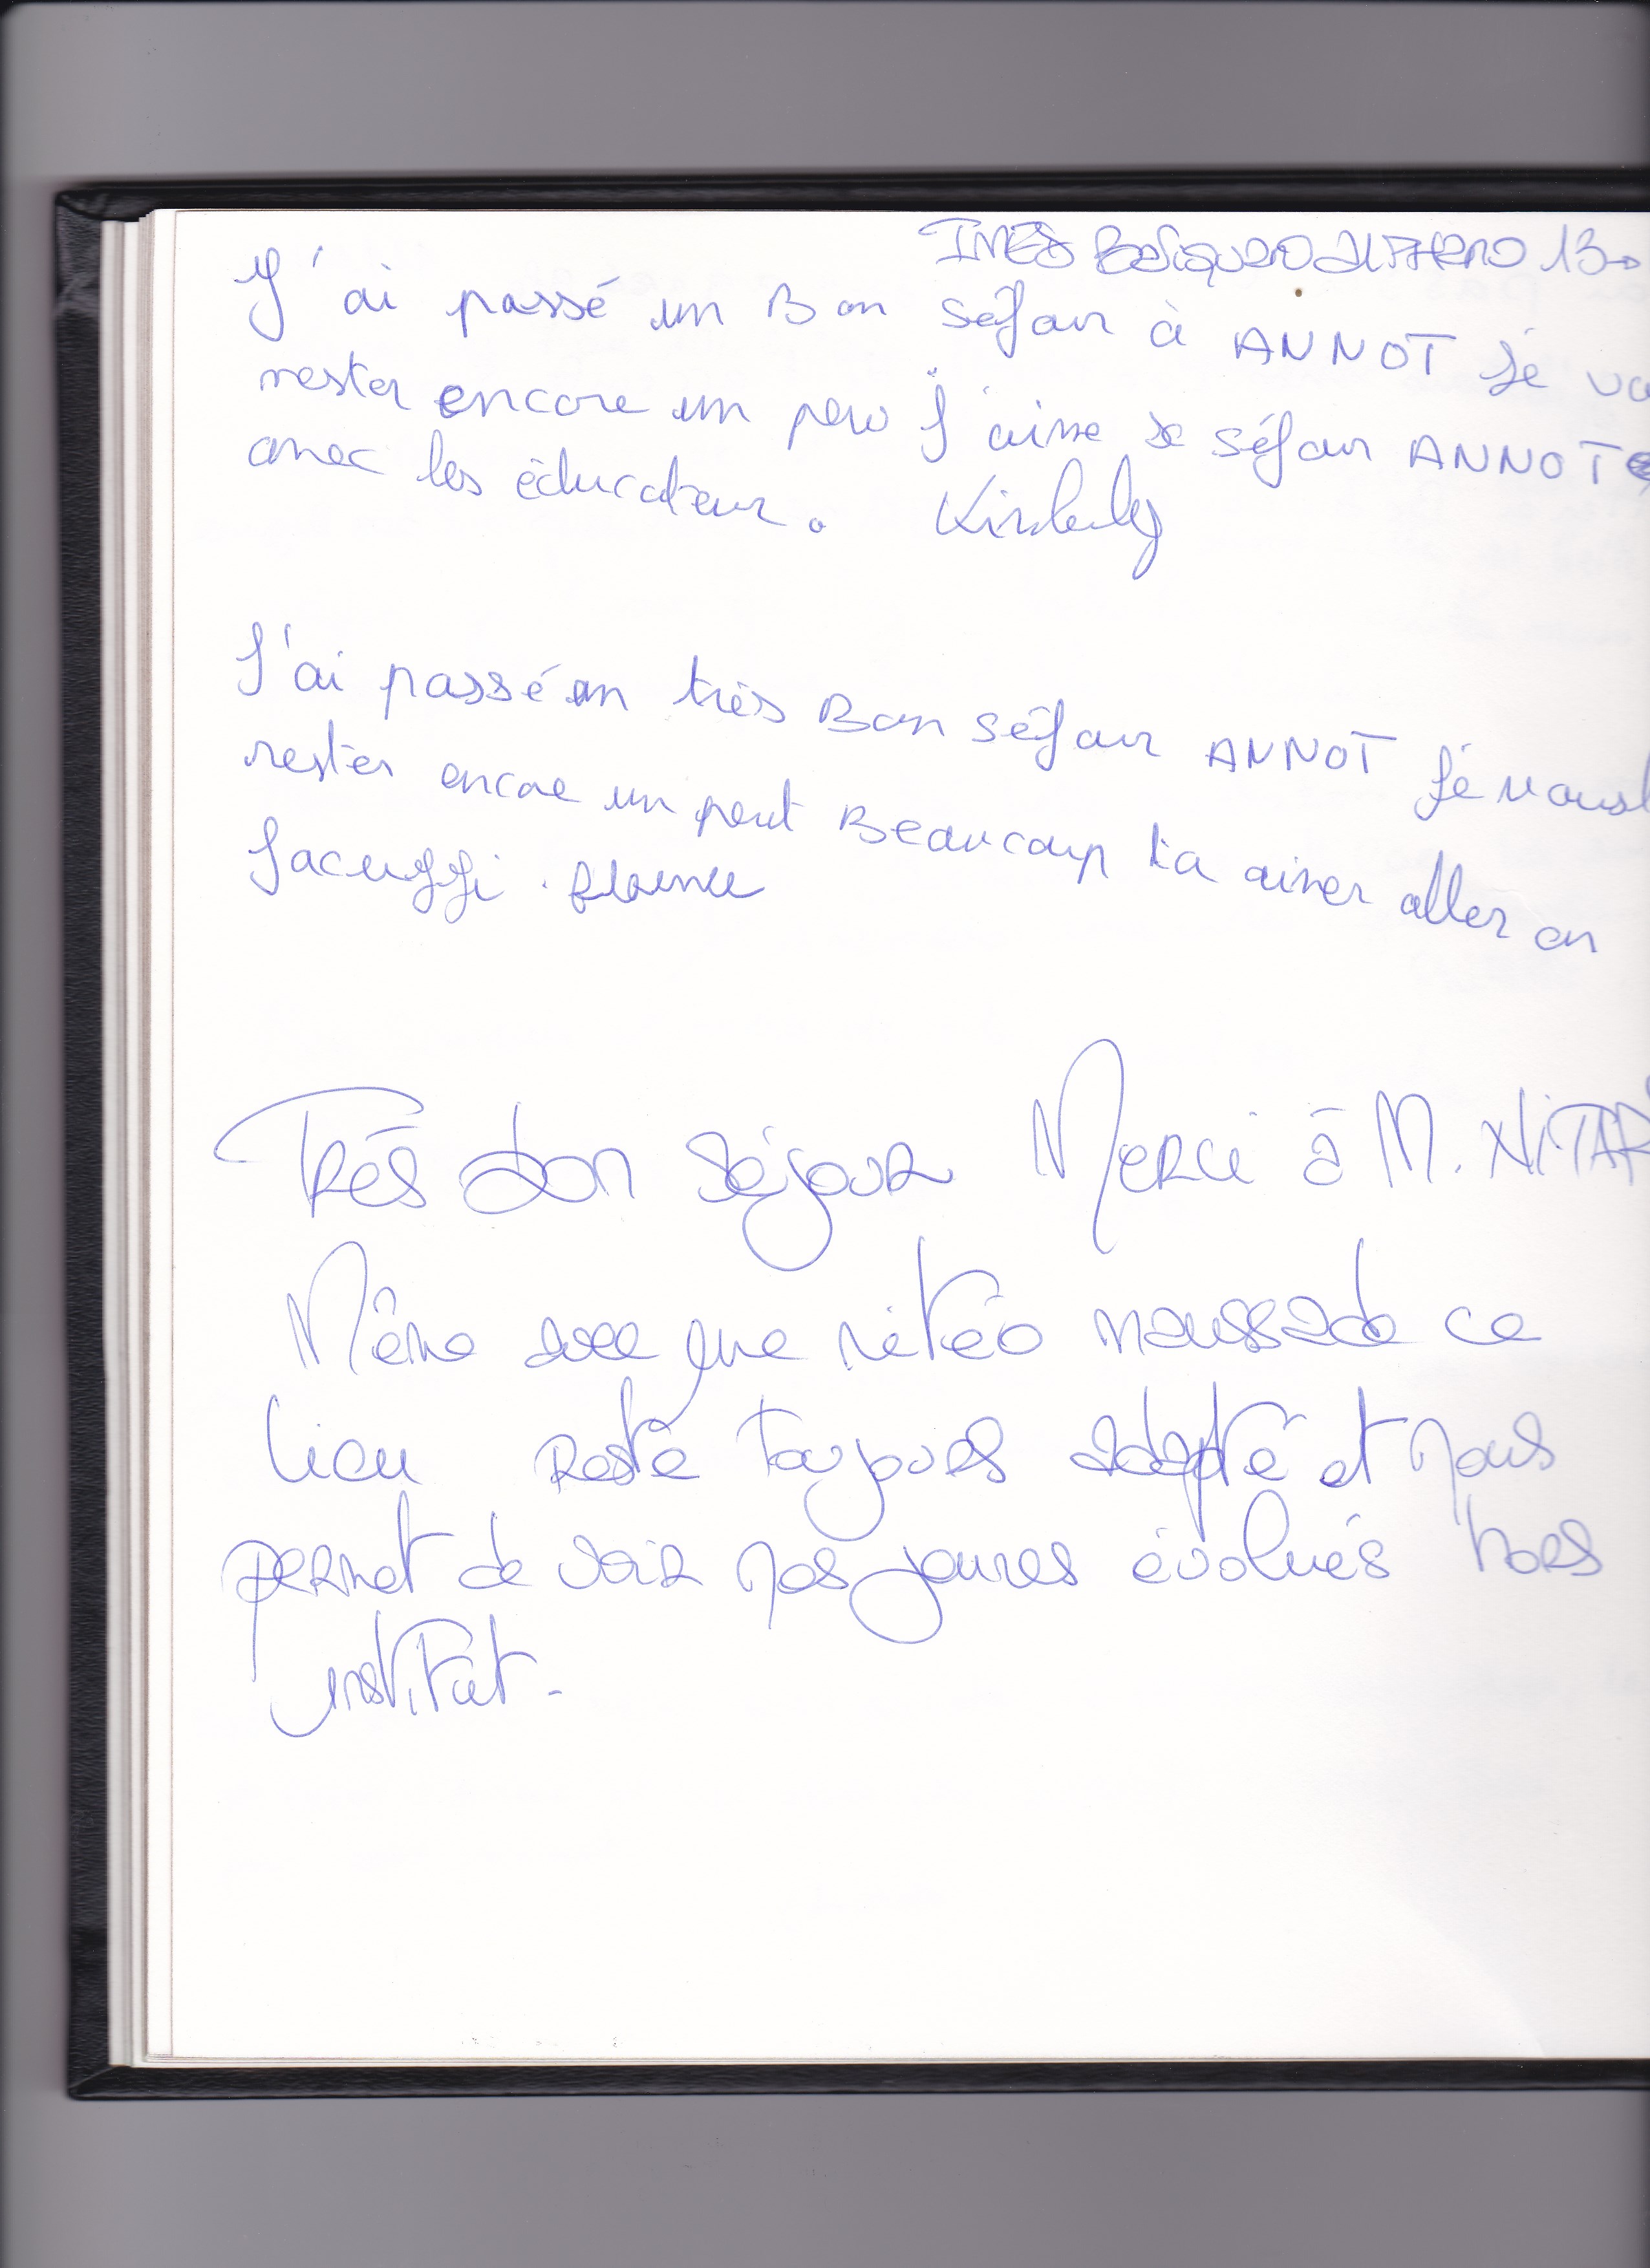 INES 13
J'ai passé un Bon séjour à ANNOT Je vo
rester encore un peu J'aime se séjour ANNOT
avec les éducateur. Kimberly
J'ai passé un très Bon séjour ANNOT Jé voul
rester encore un peut Beaucoup aimer aller on
Jacuggi.
Très bon séjour Merci à M. NiTAR
Même avec une météo maussade ce
lieu reste toujours adapté et nous
permet de voir nos jeunes évolués hors
institut.